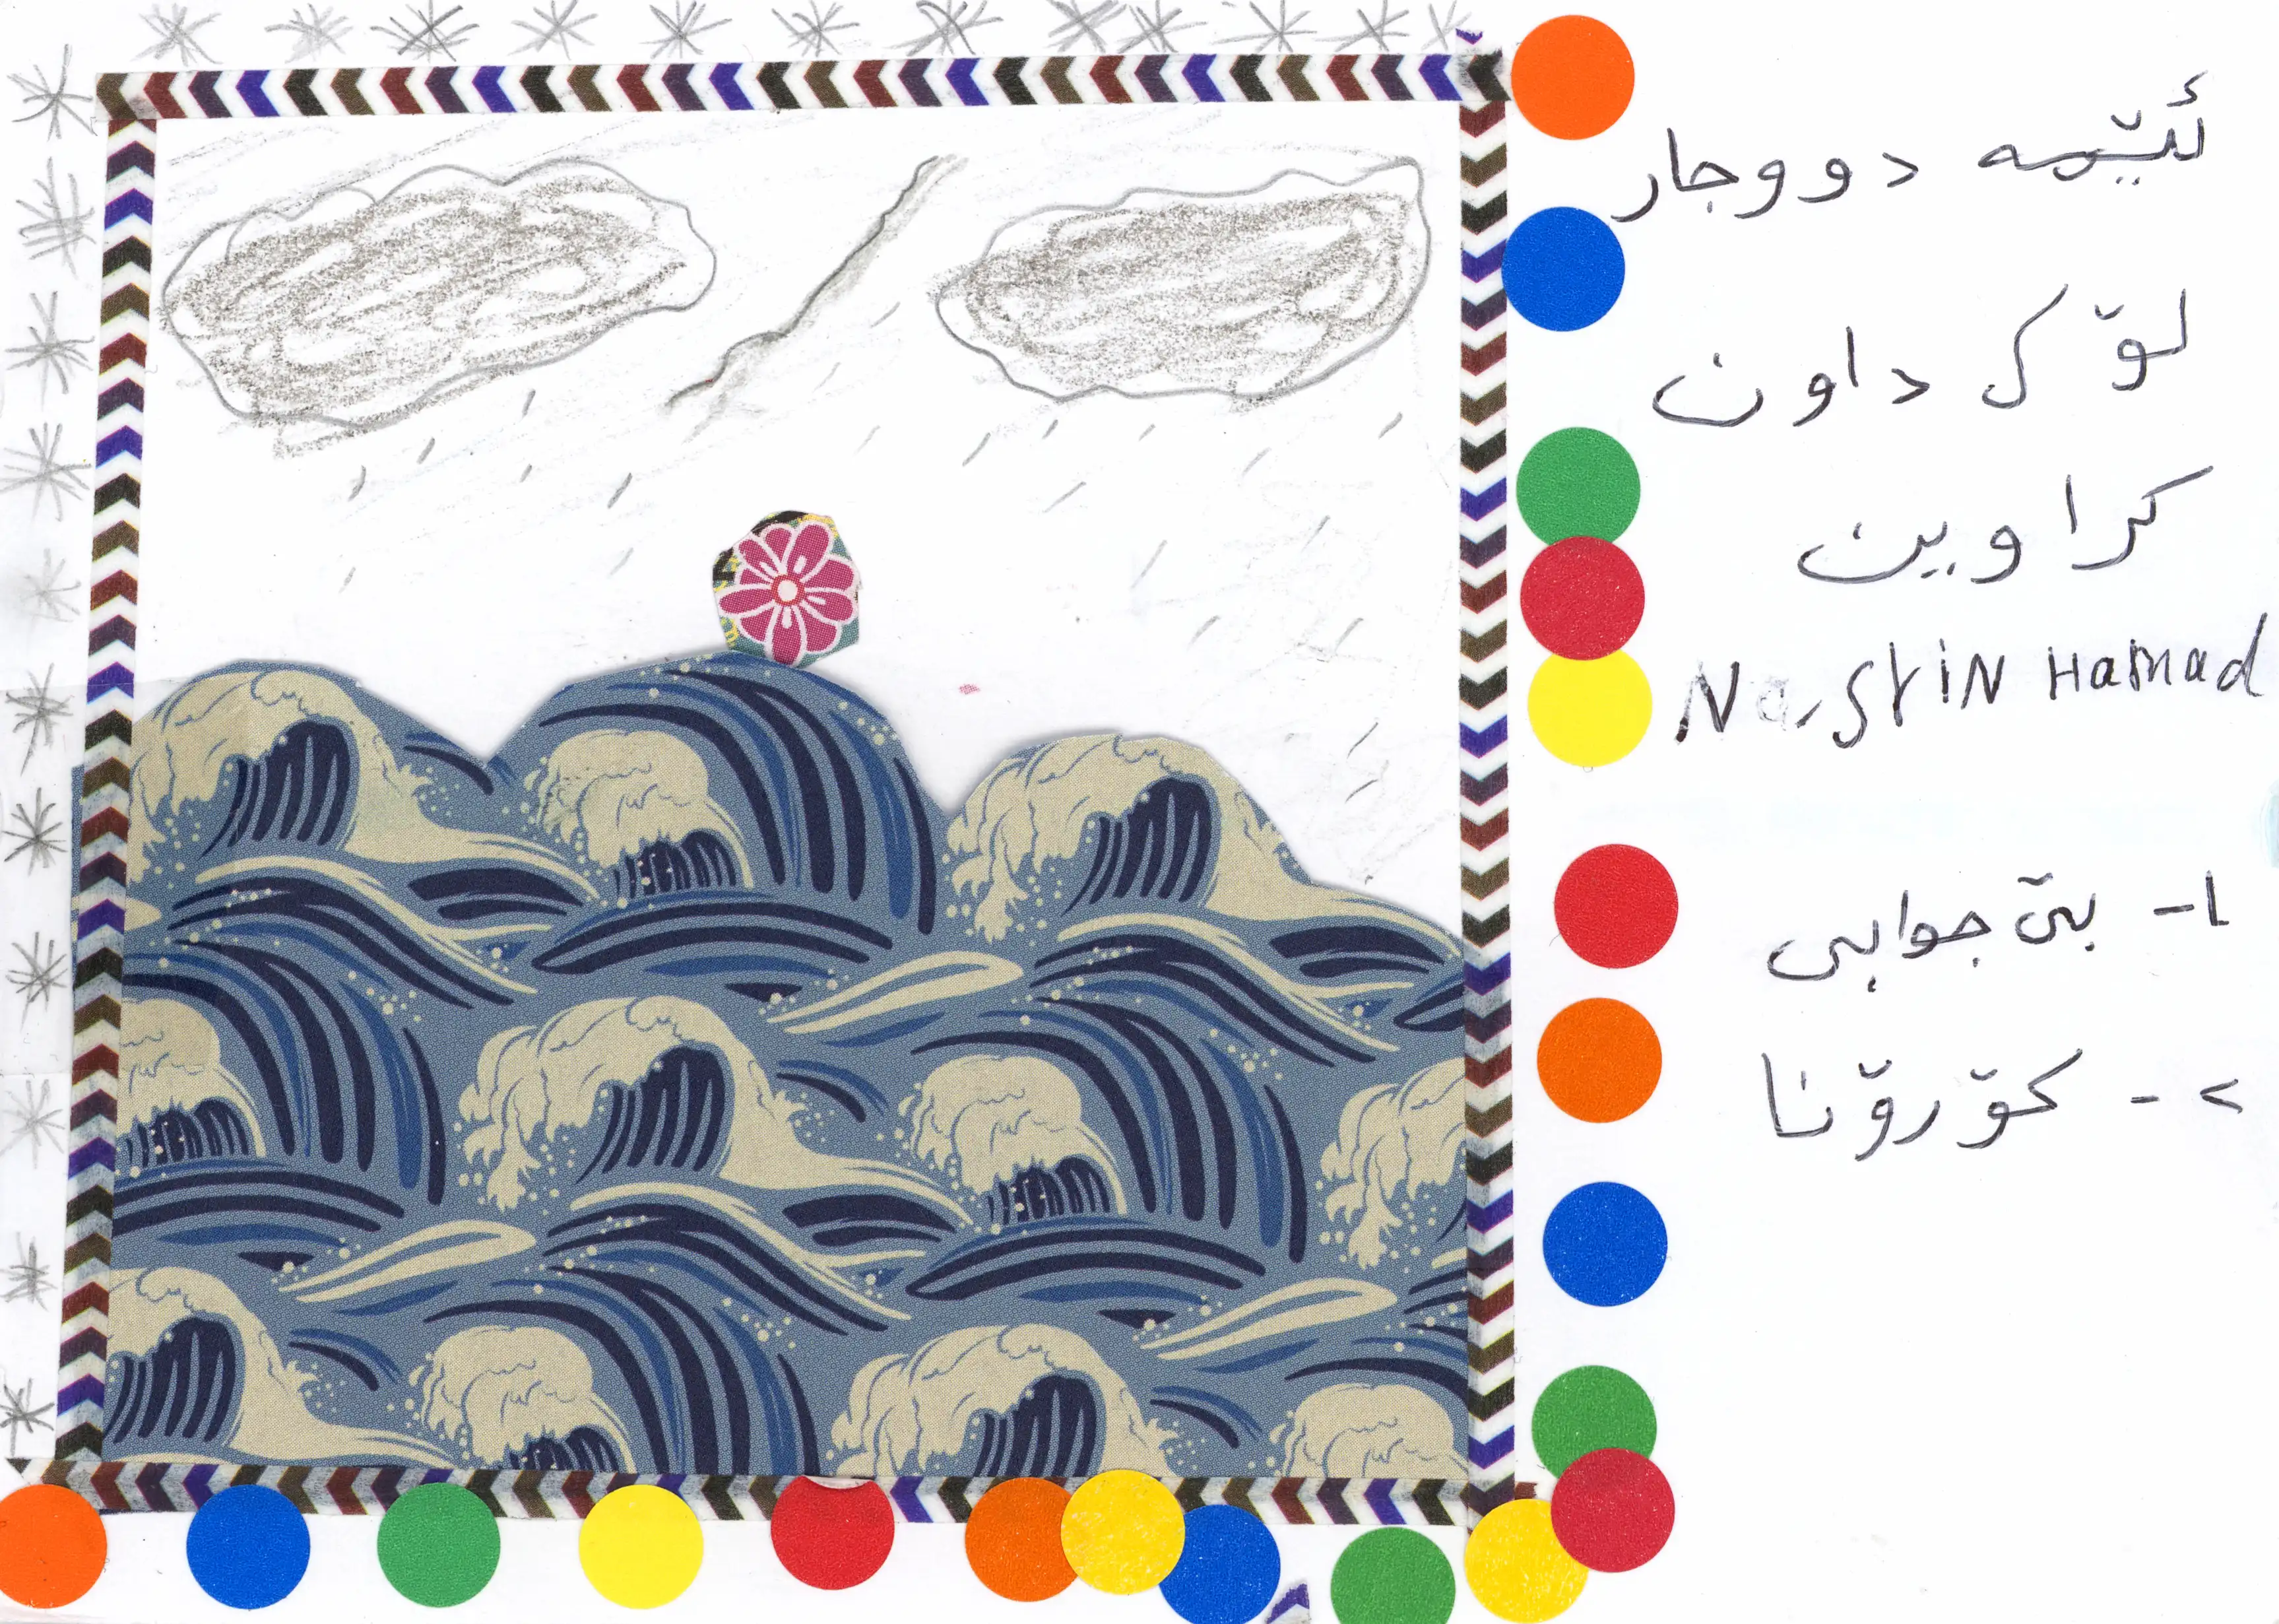 ئێمە دووجار
لۆک داون
کراوین
Nasrin Hamad
١- بێ جوابی
٢- کۆرۆنا